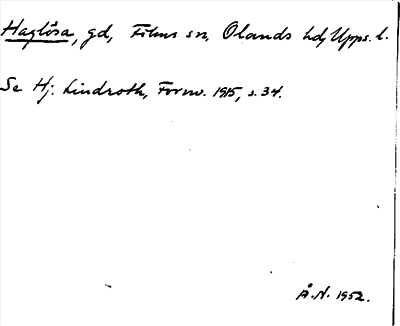 Haglösa, gd, Films sn, Olands hd, Upps. l.
Se Hj. Lindroth, Fornv. 1915, s. 34.
Å.N. 1952.